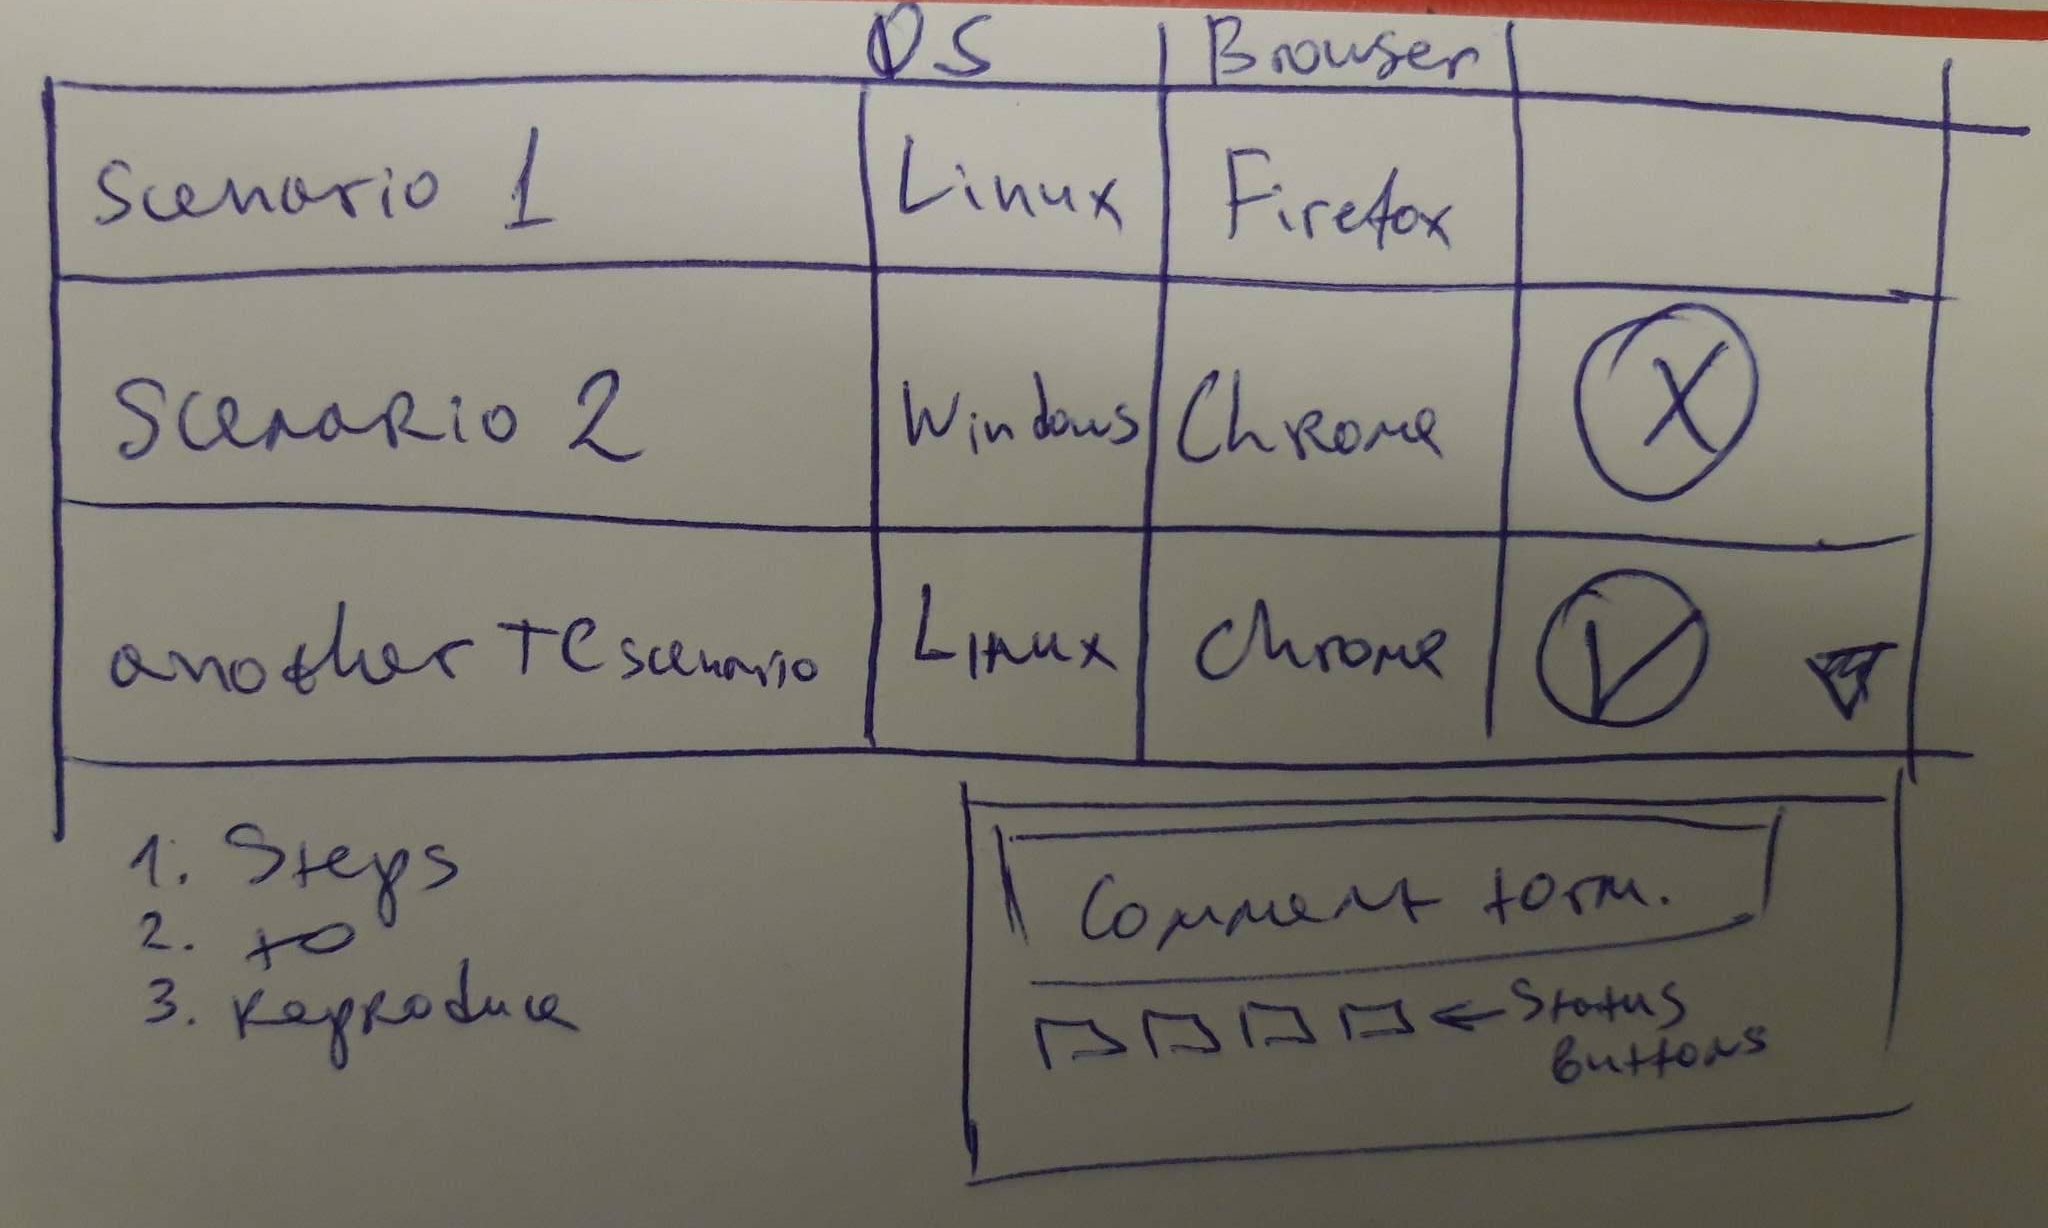 OS Browser
Scenario 1 Linux Firefox
Scenario 2 Windows Chrome X
another TC scenario Linux Chrome
1. Steps
2. to
3. Reproduce
Comment form.
← Status
buttons